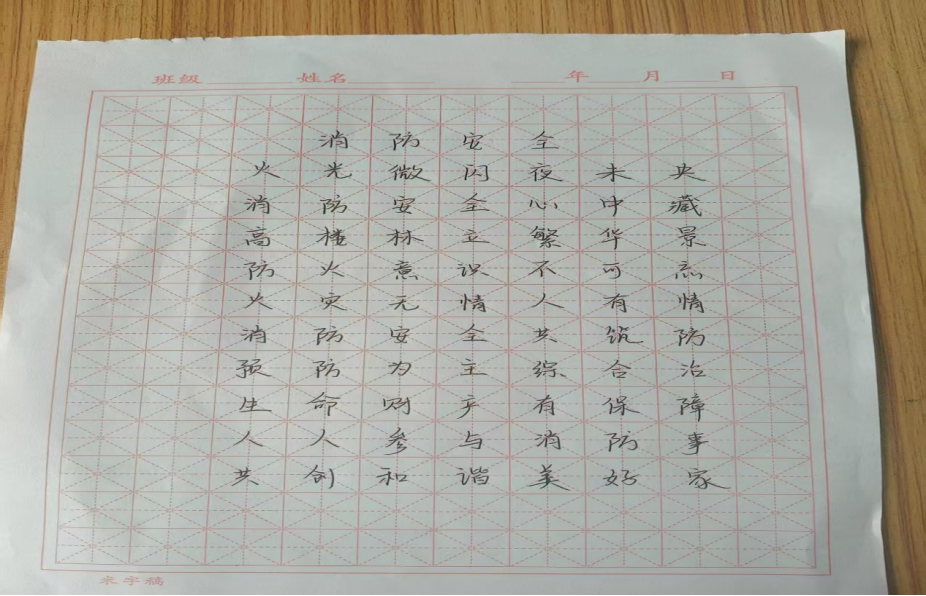 班级 姓名 年 月 日
消防安全
火光微闪夜未央
消防安全心中藏
高楼林立繁华景
防火意识不可忘
火灾无情人有情
消防安全共筑防
预防为主综合治
生命财产有保障
人人参与消防事
共创和谐美好家
米字稿